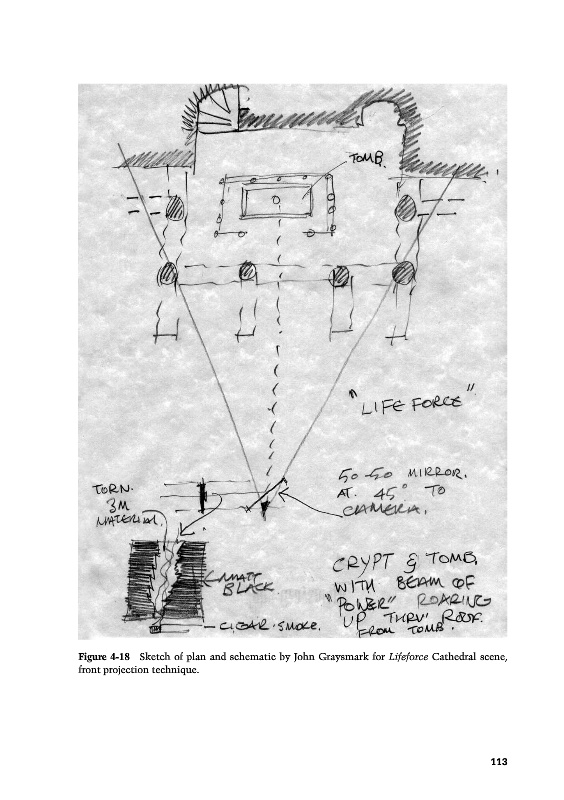 TOMB.
"LIFE FORCE"
50-50 MIRROR.
AT. 45° TO
CAMERA.
TORN.
3M
MATERIAL.
MATT
BLACK.
CIGAR·SMOKE.
CRYPT & TOMB,
WITH BEAM OF
"POWER" ROARING
UP THRU' ROOF.
FROM TOMB.
Figure 4-18 Sketch of plan and schematic by John Graysmark for Lifeforce Cathedral scene,
front projection technique.
113